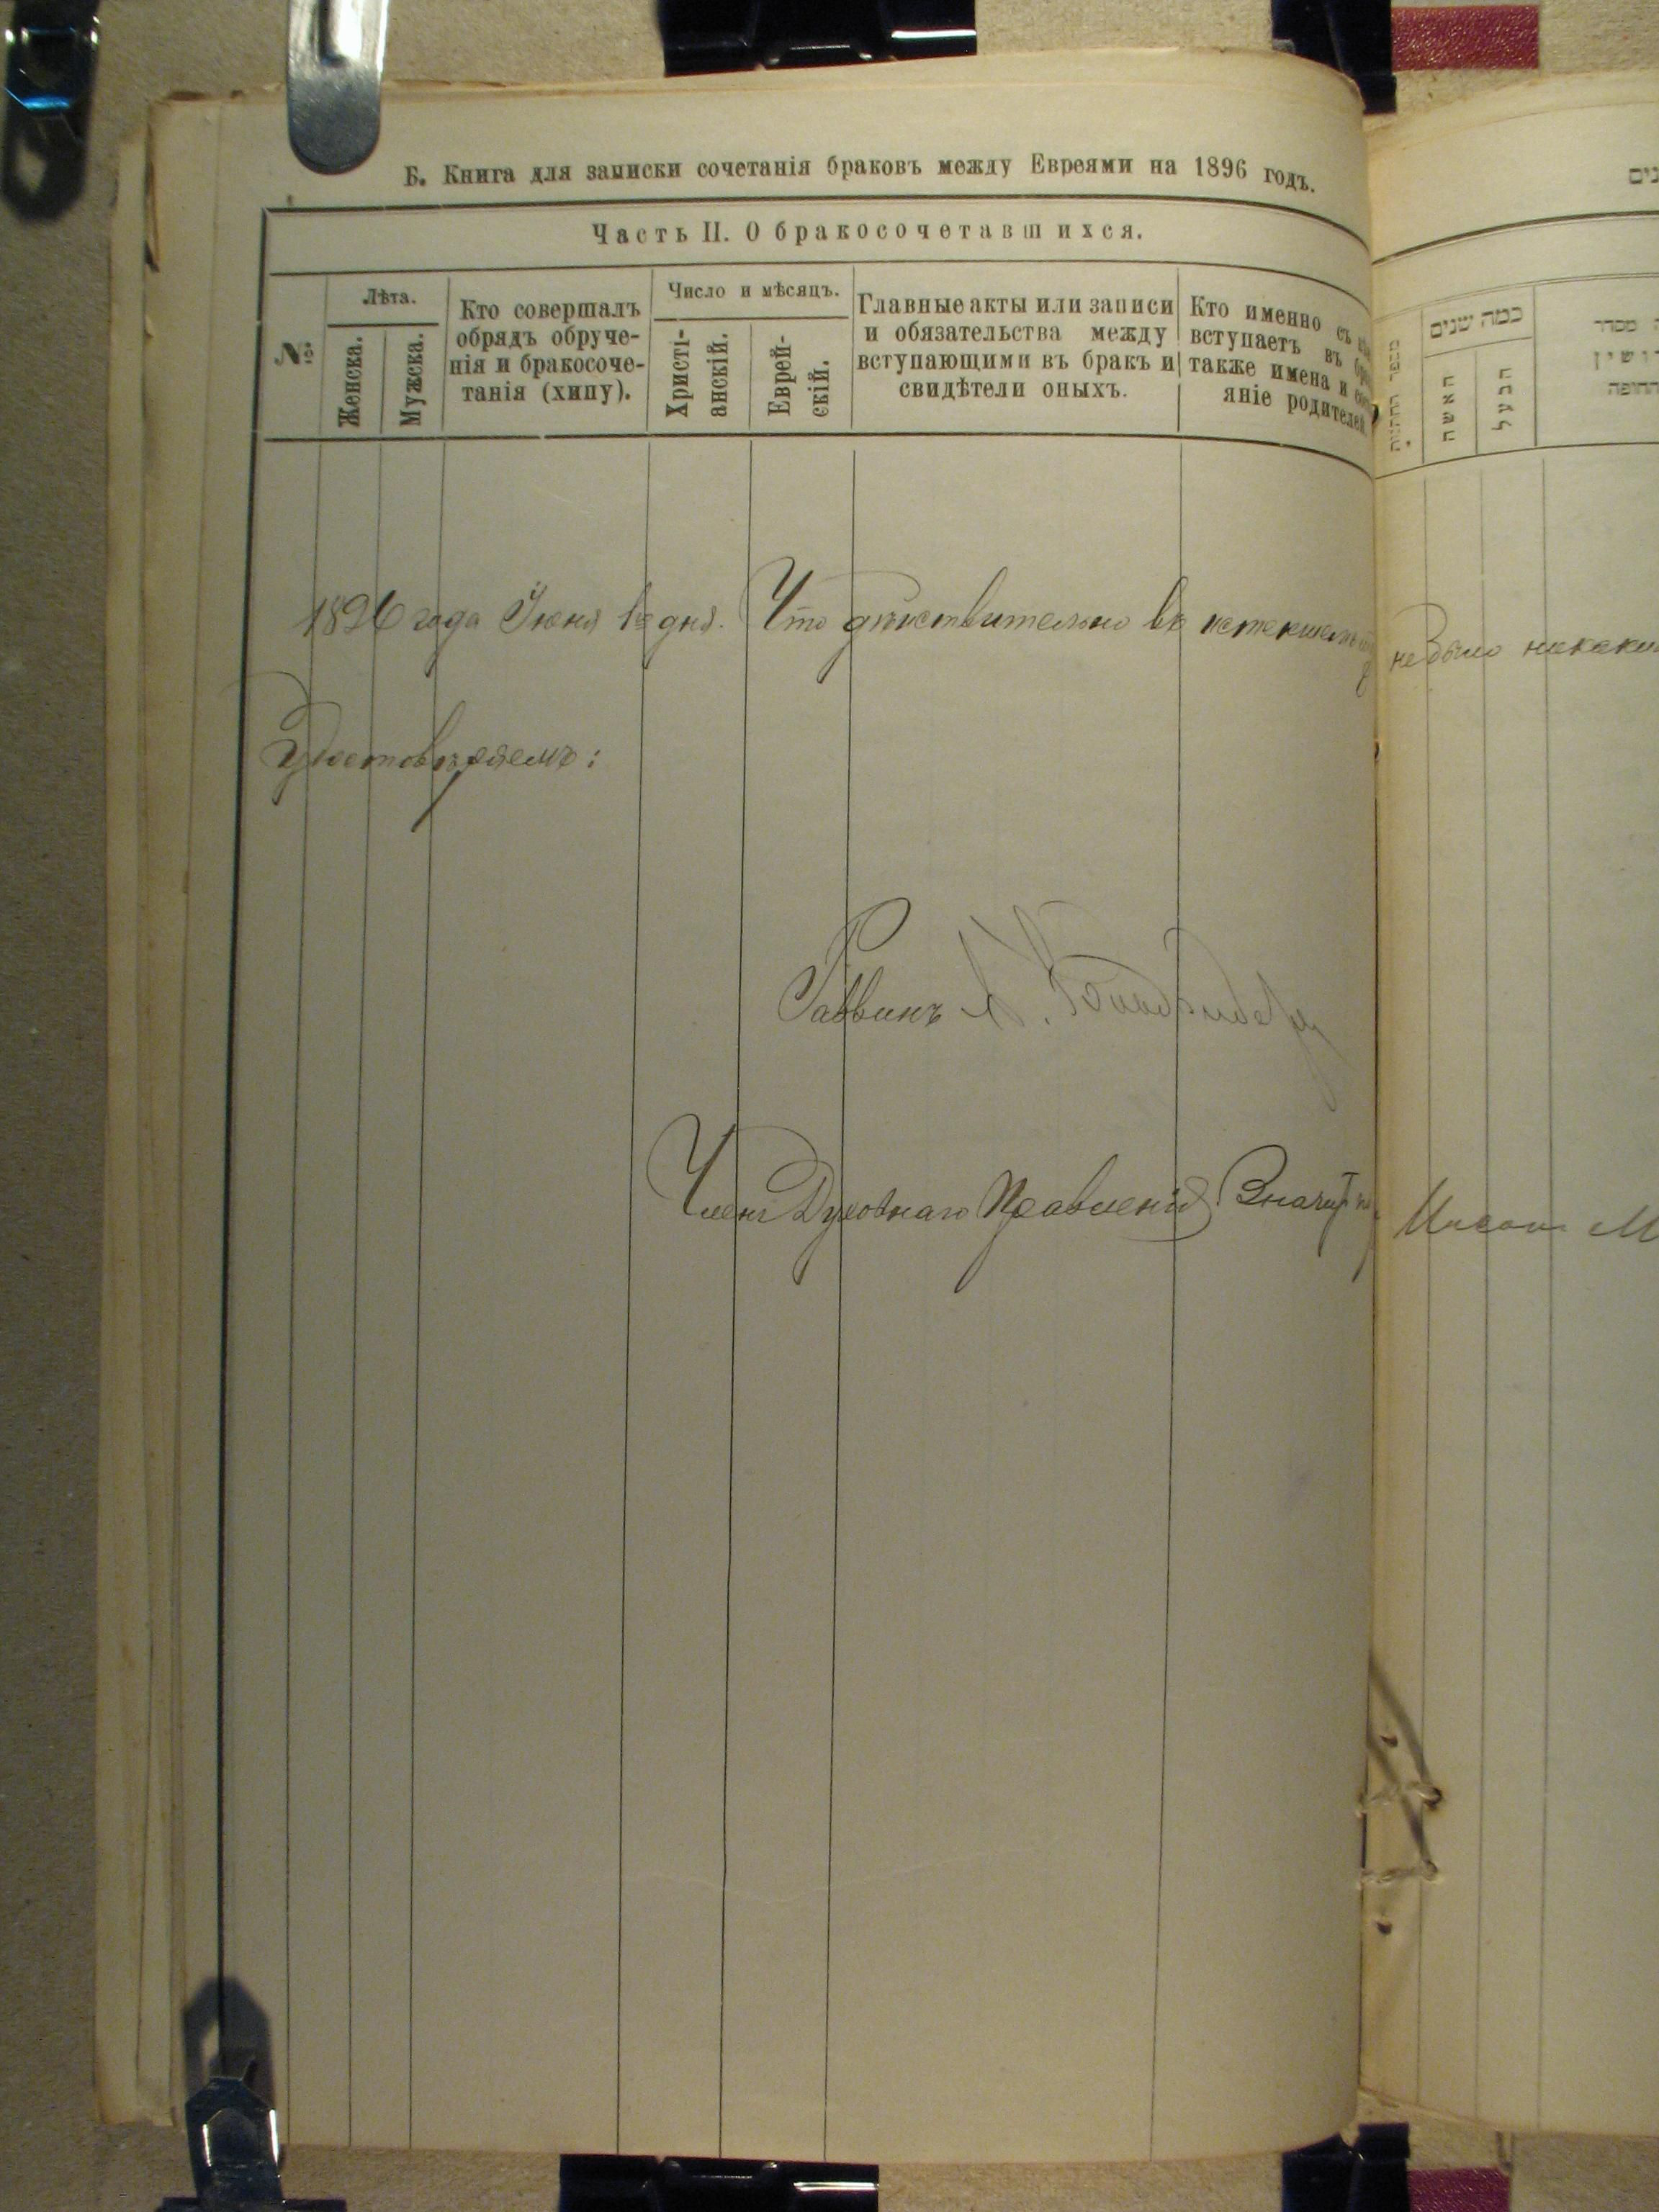 Б. Книга для записки сочетанія браковъ между Евреями на 1896 годъ.
Часть II. О бракосочетавшихся.
№
Лѣта.
Женска.
Мужска.
Кто совершалъ
обрядъ обруче-
нія и бракосоче-
танія (хипу).
Число и мѣсяцъ.
Христі-
анскій.
Еврей-
скій.
Главные акты или записи
и обязательства между
вступающими въ бракъ и
свидѣтели оныхъ.
Кто именно съ
вступаетъ въ
также имена и
яніе родителей.
כמה שנים
האשה
הבעל
מסדר
1896 года Іюня 1го дня. Что дѣйствительно въ истекшемъ
не было
Удостовѣряемъ:
Раввинъ
Членъ Духовнаго Правленія